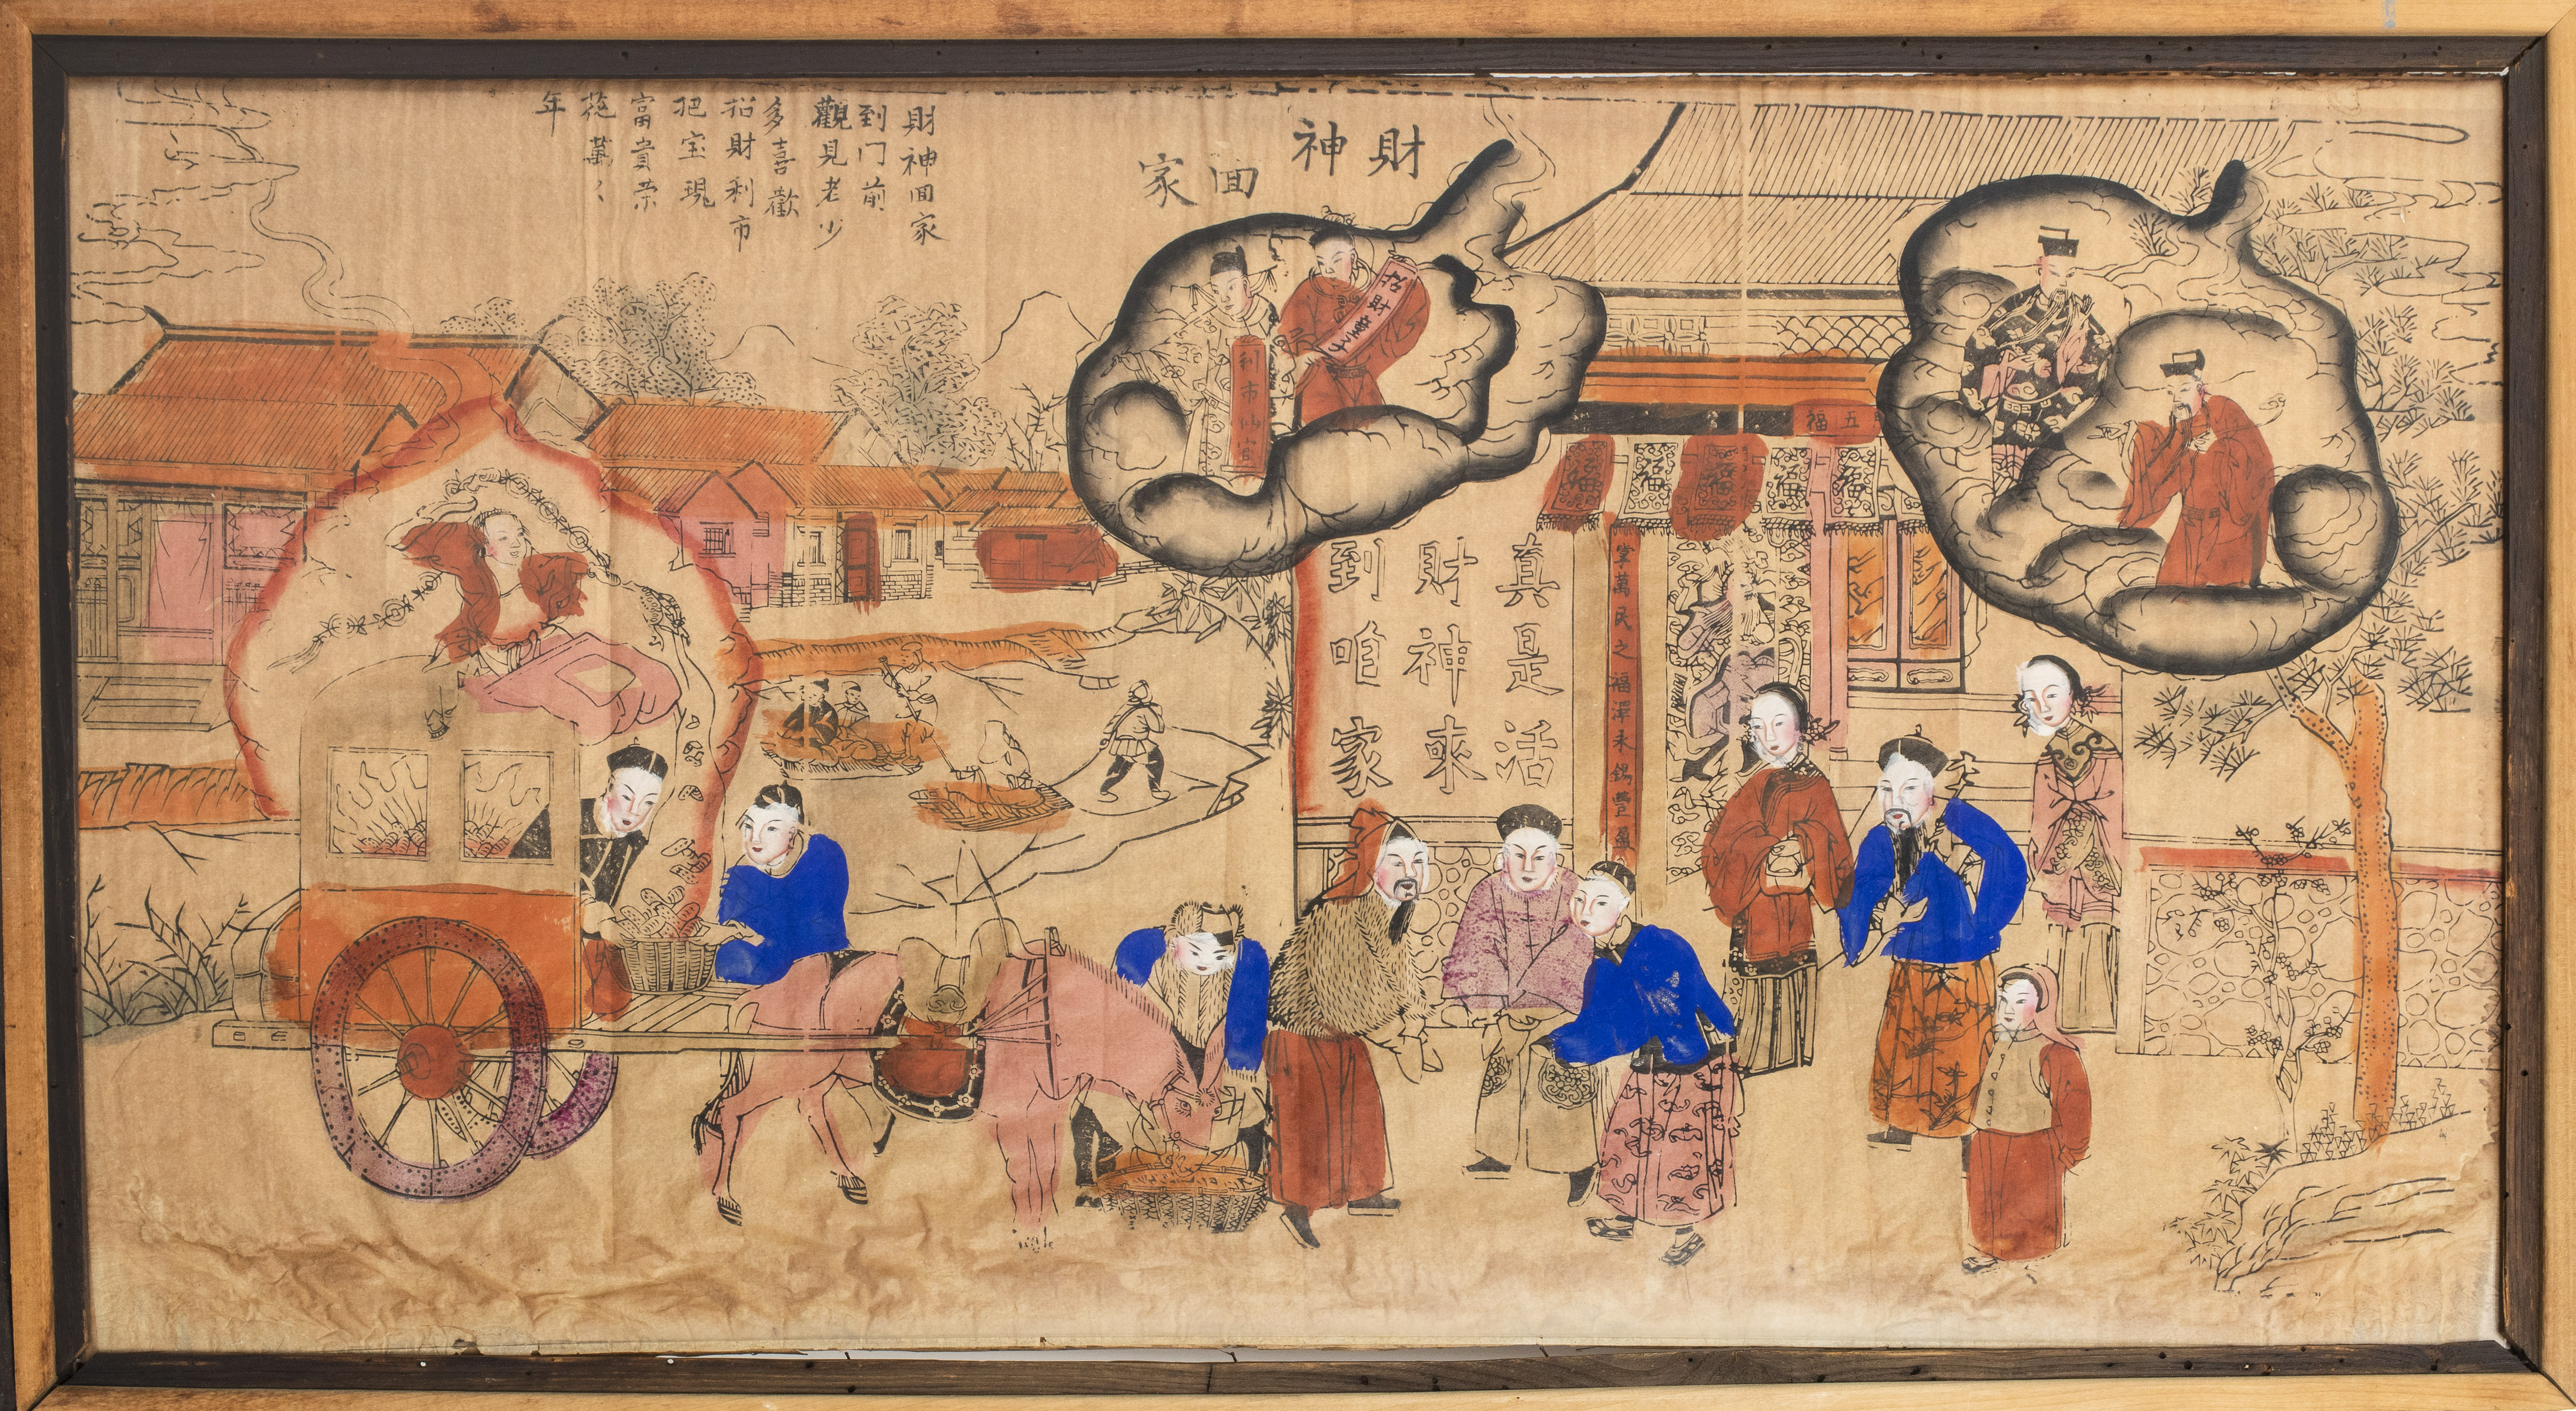 財神
囬家
財神囬家
到门前
觀見老少
多喜歡
招財利市
把宝現
富貴荣
花萬
年
招財童子
利市仙官
五福
福
福
福
福
福
真是活
財神來
到咱家
掌萬民之福澤永錫豐盈